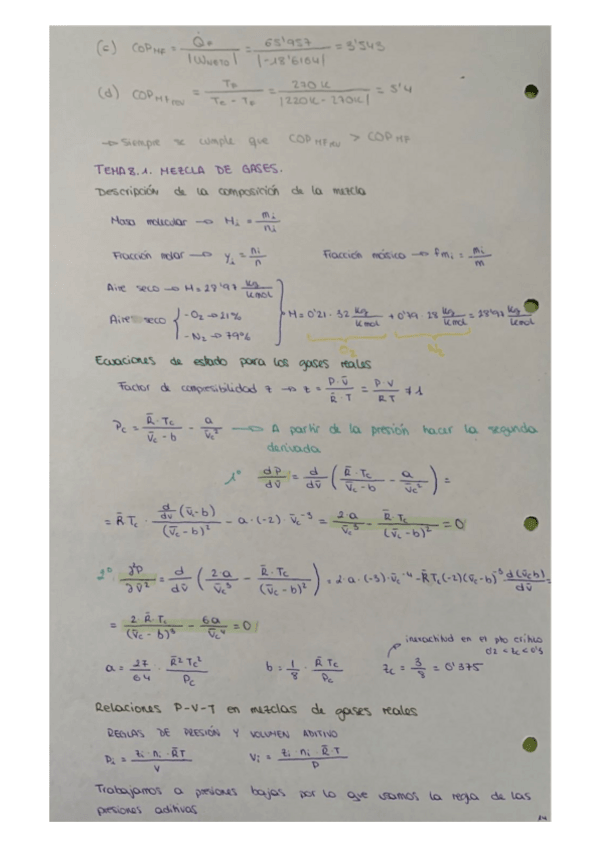 (c) COP_MF = Q̇_F / |Ẇ_NETO| = 65'957 / |-18'6104| = 3'543
(d) COP_MF REV = T_F / (T_C - T_F) = 270 K / |220K - 270K| = 5'4
→ Siempre se cumple que COP_MF REV > COP_MF
TEMA 8.1. MEZCLA DE GASES.
Descripción de la composición de la mezcla
Masa molecular → M_i = m_i / n_i
Fracción molar → y_i = n_i / n Fracción másica → fm_i = m_i / m
Aire seco → M = 28'97 kg/kmol
Aire seco { -O₂ → 21% -N₂ → 79% } M = 0'21 · 32 kg/kmol + 0'79 · 28 kg/kmol = 28'97 kg/kmol
O₂ N₂
Ecuaciones de estado para los gases reales
Factor de compresibilidad z → z = P · v̄ / R̄ · T = P · v / R T ≠ 1
P_c = R̄ · T_c / (v̄_c - b) - a / v̄_c² → A partir de la presión hacer la segunda
derivada
1º dP/dv̄ = d/dv̄ ( R̄ · T_c / (v̄_c - b) - a / v̄_c² ) =
= R̄ T_c · d/dv̄ (v̄_c - b) / (v̄_c - b)² - a · (-2) · v̄_c⁻³ = 2 · a / v̄_c³ - R̄ · T_c / (v̄_c - b)² = 0
2º ∂²P/∂v̄² = d/dv̄ ( 2 · a / v̄_c³ - R̄ · T_c / (v̄_c - b)² ) = 2 · a · (-3) · v̄_c⁻⁴ - R̄ T_c (-2) (v̄_c - b)⁻³ d(v̄_c b)/dv̄ =
= 2 · R̄ · T_c / (v̄_c - b)³ - 6a / v̄_c⁴ = 0
inexactitud en el pto crítico
0'2 < z_c < 0'3
a = 27/64 · R̄² T_c² / P_c b = 1/8 · R̄ T_c / P_c z_c = 3/8 = 0'375
Relaciones P-V-T en mezclas de gases reales
REGLAS DE PRESIÓN Y VOLUMEN ADITIVO
P_i = z_i · n_i · R̄ T / V V_i = z_i · n_i · R̄ · T / P
Trabajamos a presiones bajas por lo que usamos la regla de las
presiones aditivas